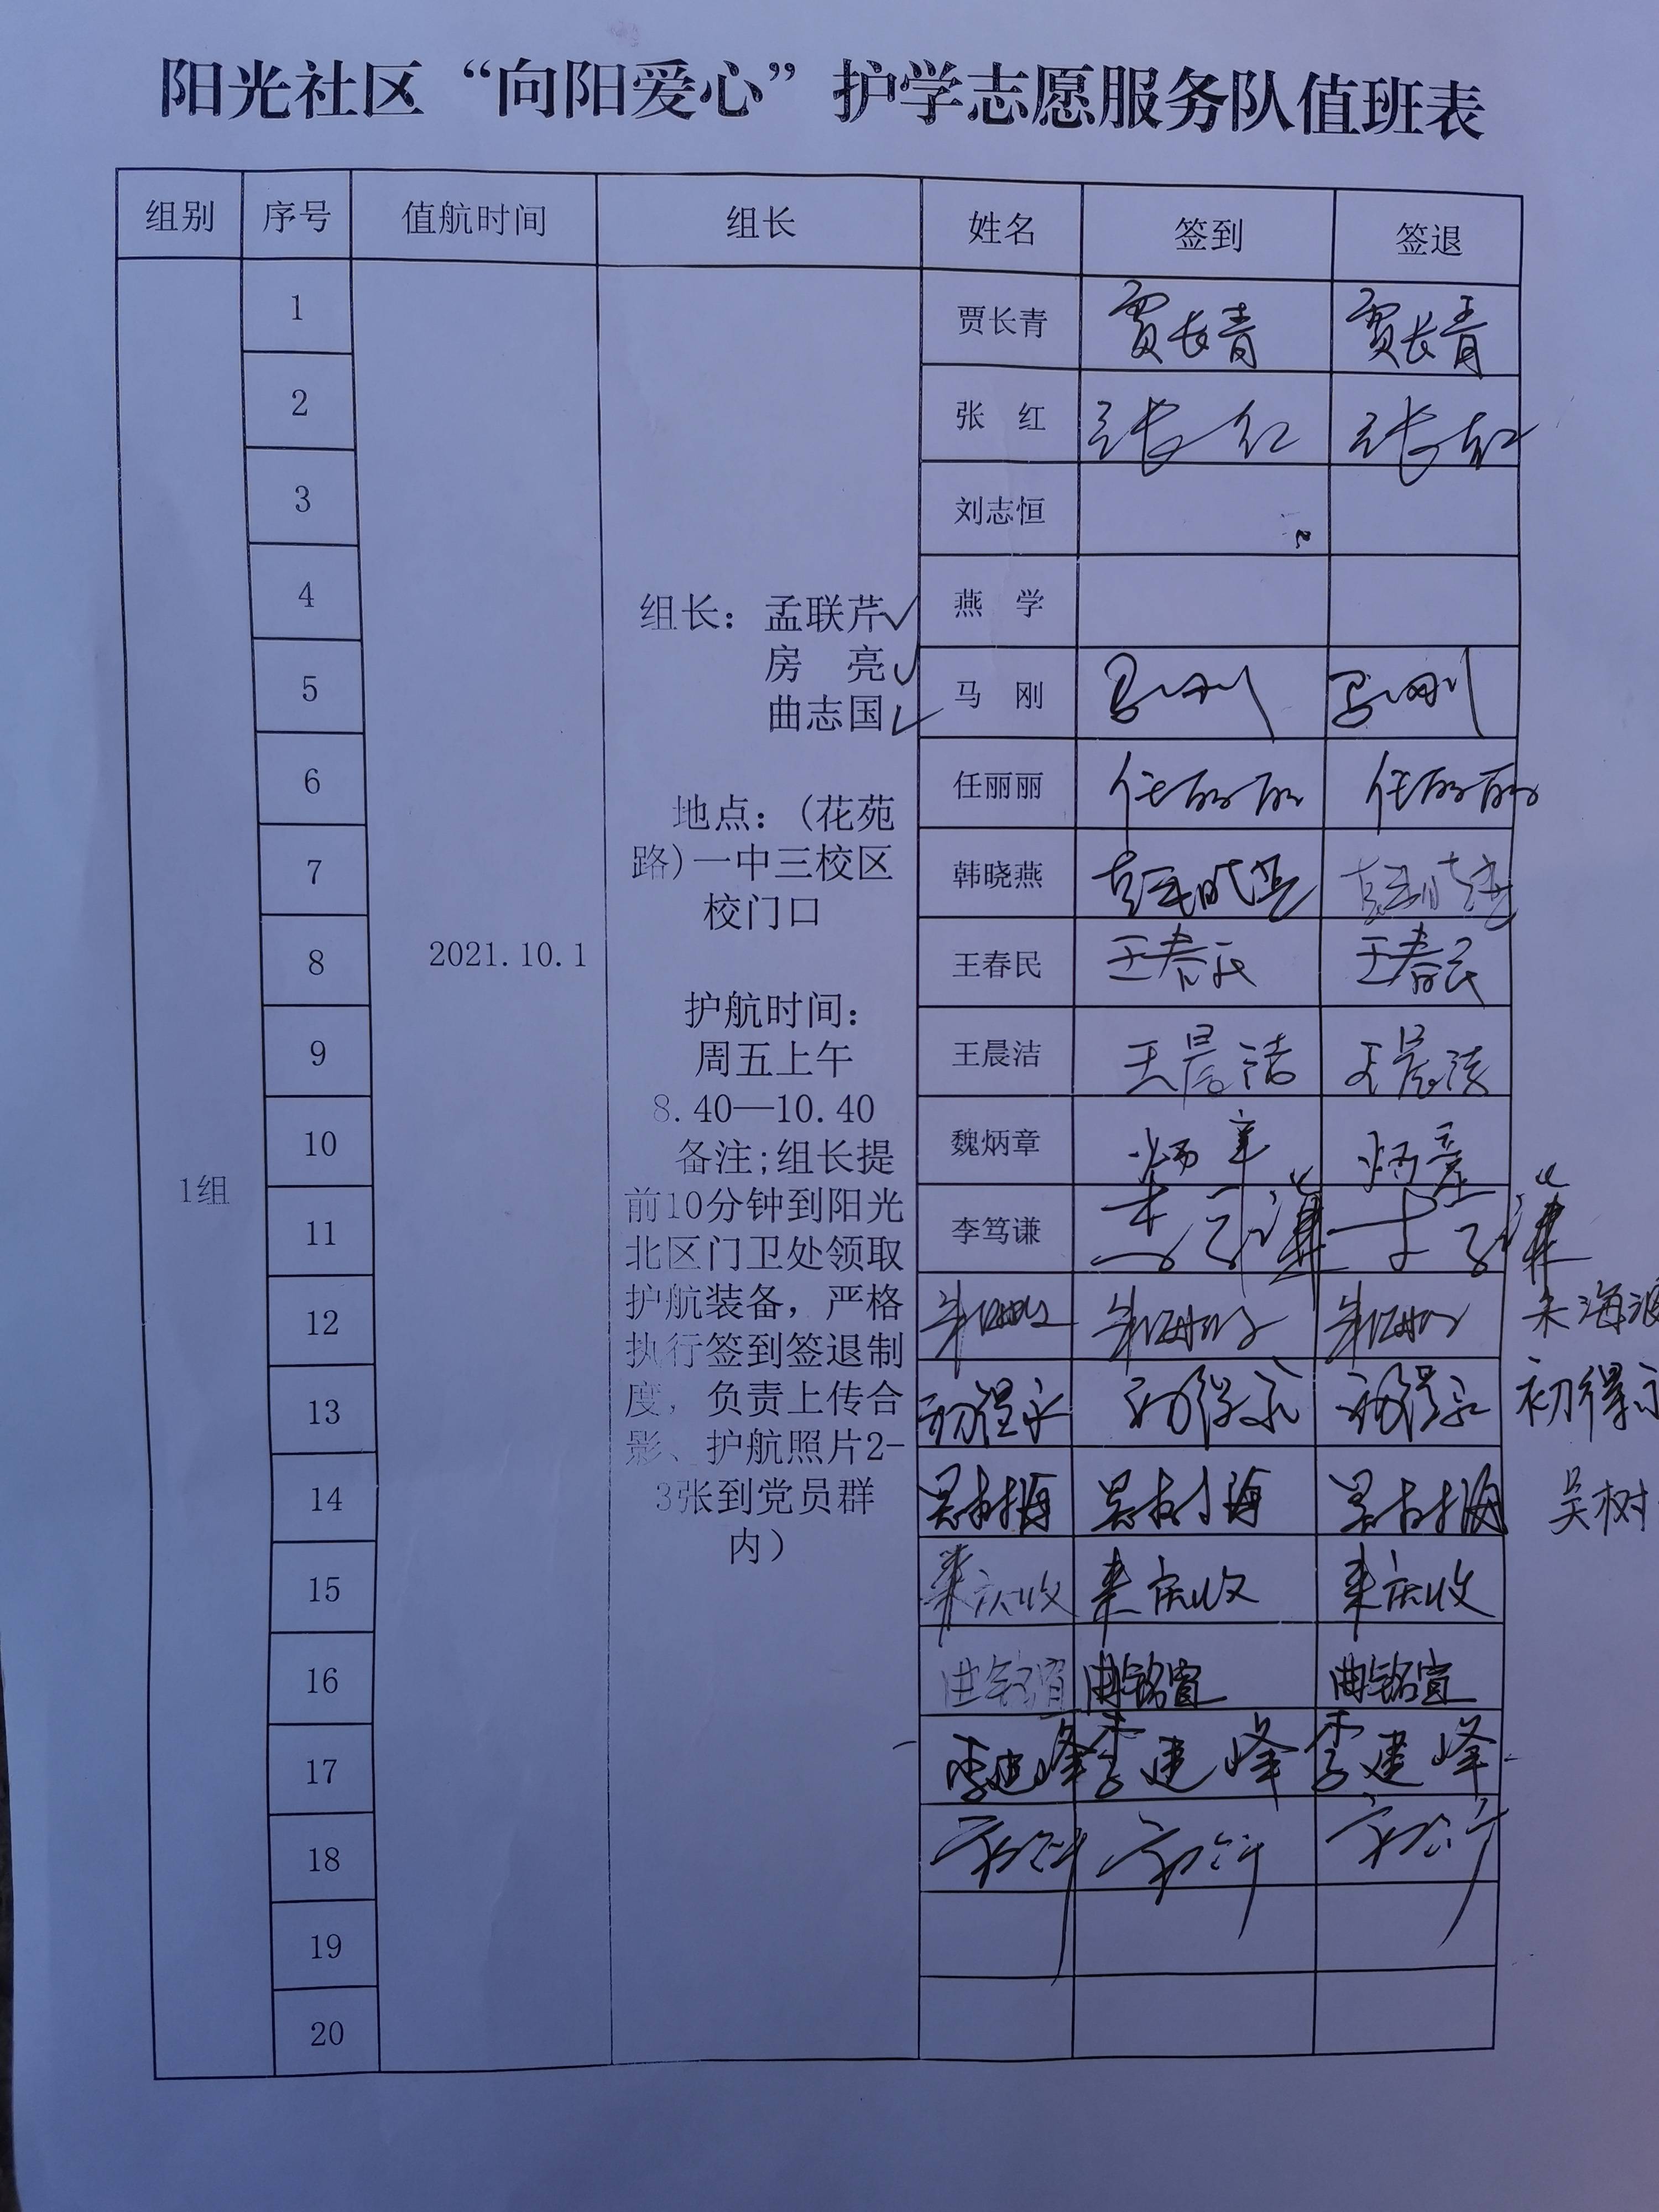 阳光社区“向阳爱心”护学志愿服务队值班表
组别 序号 值航时间 组长 姓名 签到 签退
1组
2021.10.1
组长：孟联芹✓
房 亮✓
曲志国✓
地点：(花苑
路)一中三校区
校门口
护航时间：
周五上午
8.40—10.40
备注;组长提
前10分钟到阳光
北区门卫处领取
护航装备，严格
执行签到签退制
度，负责上传合
影、护航照片2-
3张到党员群
内）
1 贾长青 贾长青 贾长青
2 张 红 张红 张红
3 刘志恒
4 燕 学
5 马 刚 马刚 马刚
6 任丽丽 任丽丽 任丽丽
7 韩晓燕 韩晓燕 韩晓燕
8 王春民 王春民 王春民
9 王晨洁 王晨洁 王晨洁
10 魏炳章 炳章 炳章
11 李笃谦 李笃谦 李笃谦
12 朱海波 朱海波 朱海波 朱海波
13 初得永 初得永 初得永 初得永
14 吴树海 吴树海 吴树海 吴树
15 来庆收 来庆收 来庆收
16 曲铭宣 曲铭宣 曲铭宣
17 李建峰 李建峰 李建峰
18
19
20